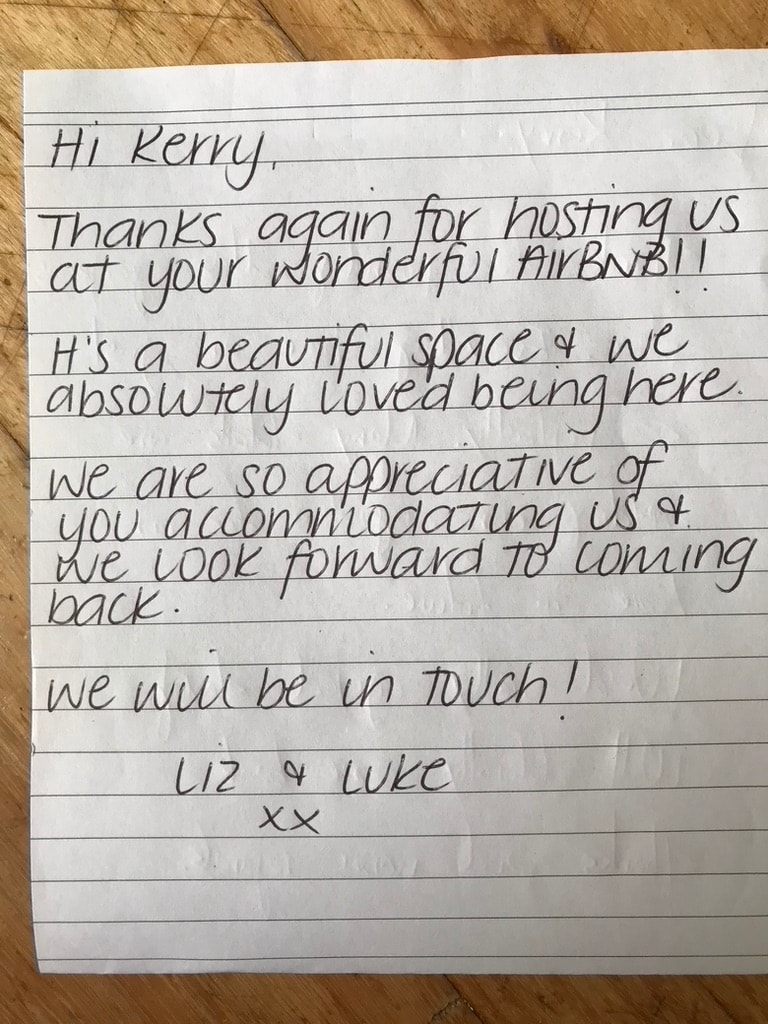 Hi Kerry,
Thanks again for hosting us
at your wonderful AirBNB!!
It's a beautiful space & we
absolutely loved being here.
We are so appreciative of
you accommodating us &
we look forward to coming
back.
We will be in touch!
Liz & Luke
xx